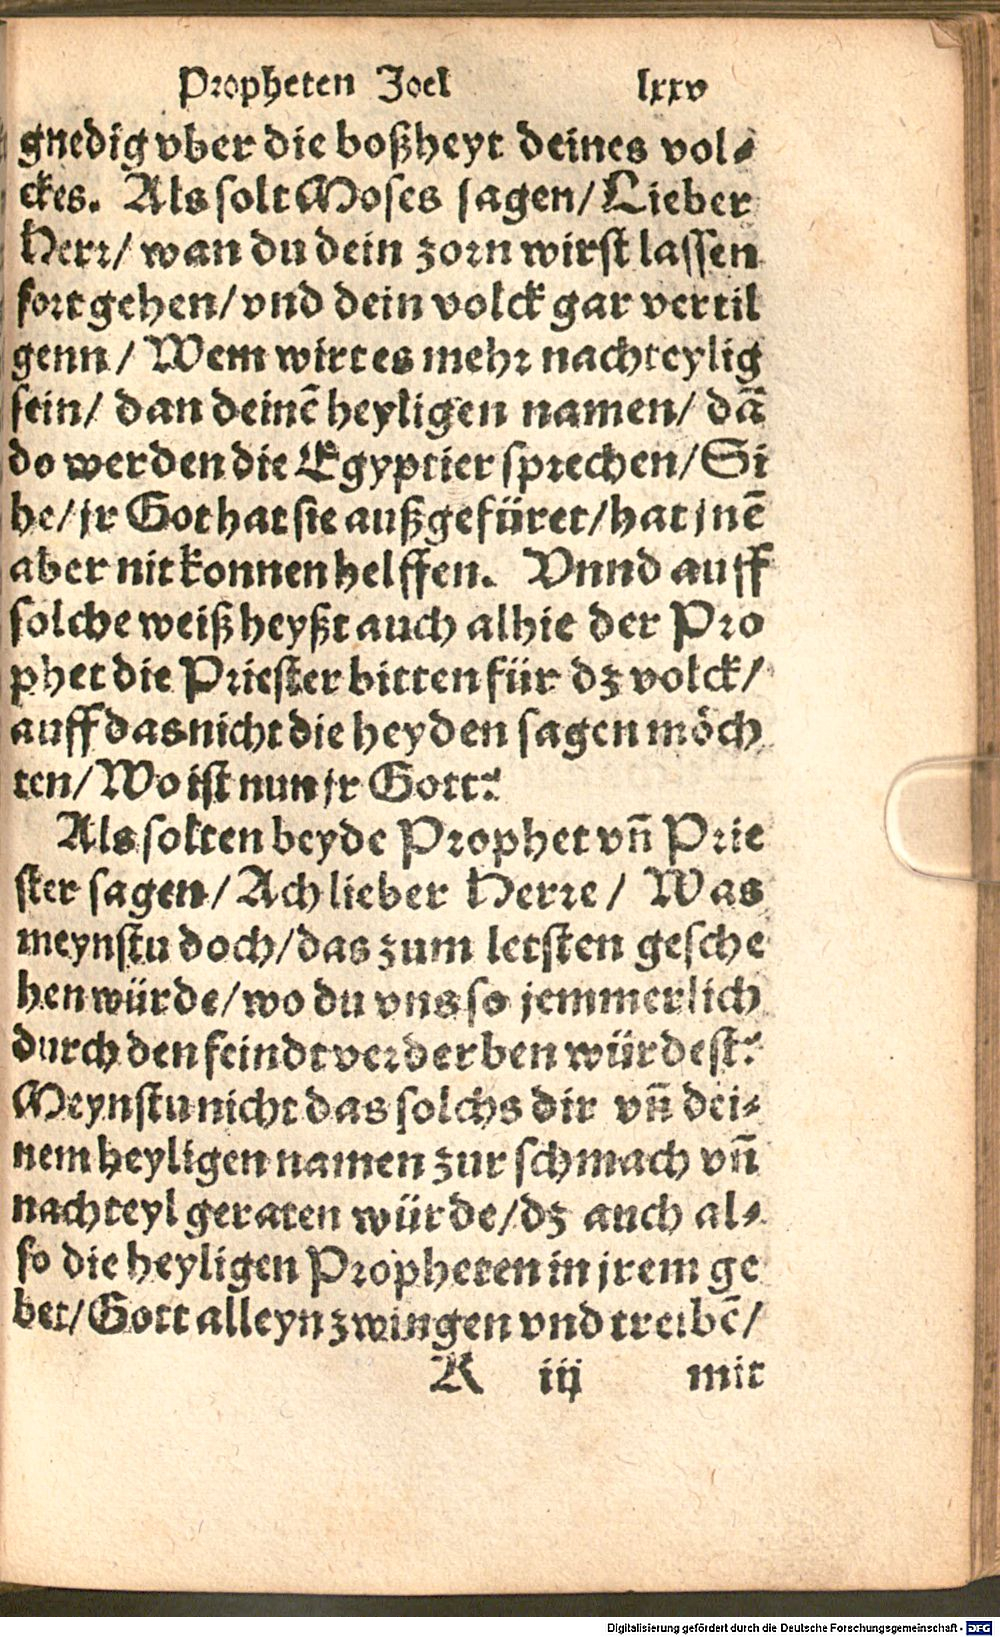 Propheten Joel lxxv
gnedig vber die boßheyt deines vol⸗
ckes. Als solt Moses sagen/ Lieber
Herr/ wan du dein zorn wirst lassen
fort gehen/ vnd dein volck gar vertil
genn/ Wem wirt es mehr nachteylig
sein/ dan deinē heyligen namen/ dā
do werden die Egyptier sprechen/ Si
he/ jr Got hat sie außgefüret/ hat jnē
aber nit konnen helffen. Vnnd auff
solche weiß heyßt auch alhie der Pro
phet die Priester bitten für dz volck/
auff das nicht die heyden sagen möch
ten/ Wo ist nun jr Gott?
Als solten beyde Prophet vñ Prie
ster sagen/ Ach lieber Herre/ Was
meynstu doch/ das zum letsten gesche
hen würde/ wo du vns so jemmerlich
durch den feindt verderben würdest?
Meynstu nicht das solchs dir vñ dei⸗
nem heyligen namen zur schmach vñ
nachteyl geraten würde/ dz auch al⸗
so die heyligen Propheten in jrem ge
bet/ Gott alleyn zwingen vnd treibē/
K iij mit
Digitalisierung gefördert durch die Deutsche Forschungsgemeinschaft - DFG